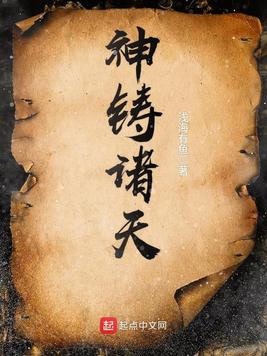 神铸诸天
浅海有鱼 著
起点
起点中文网